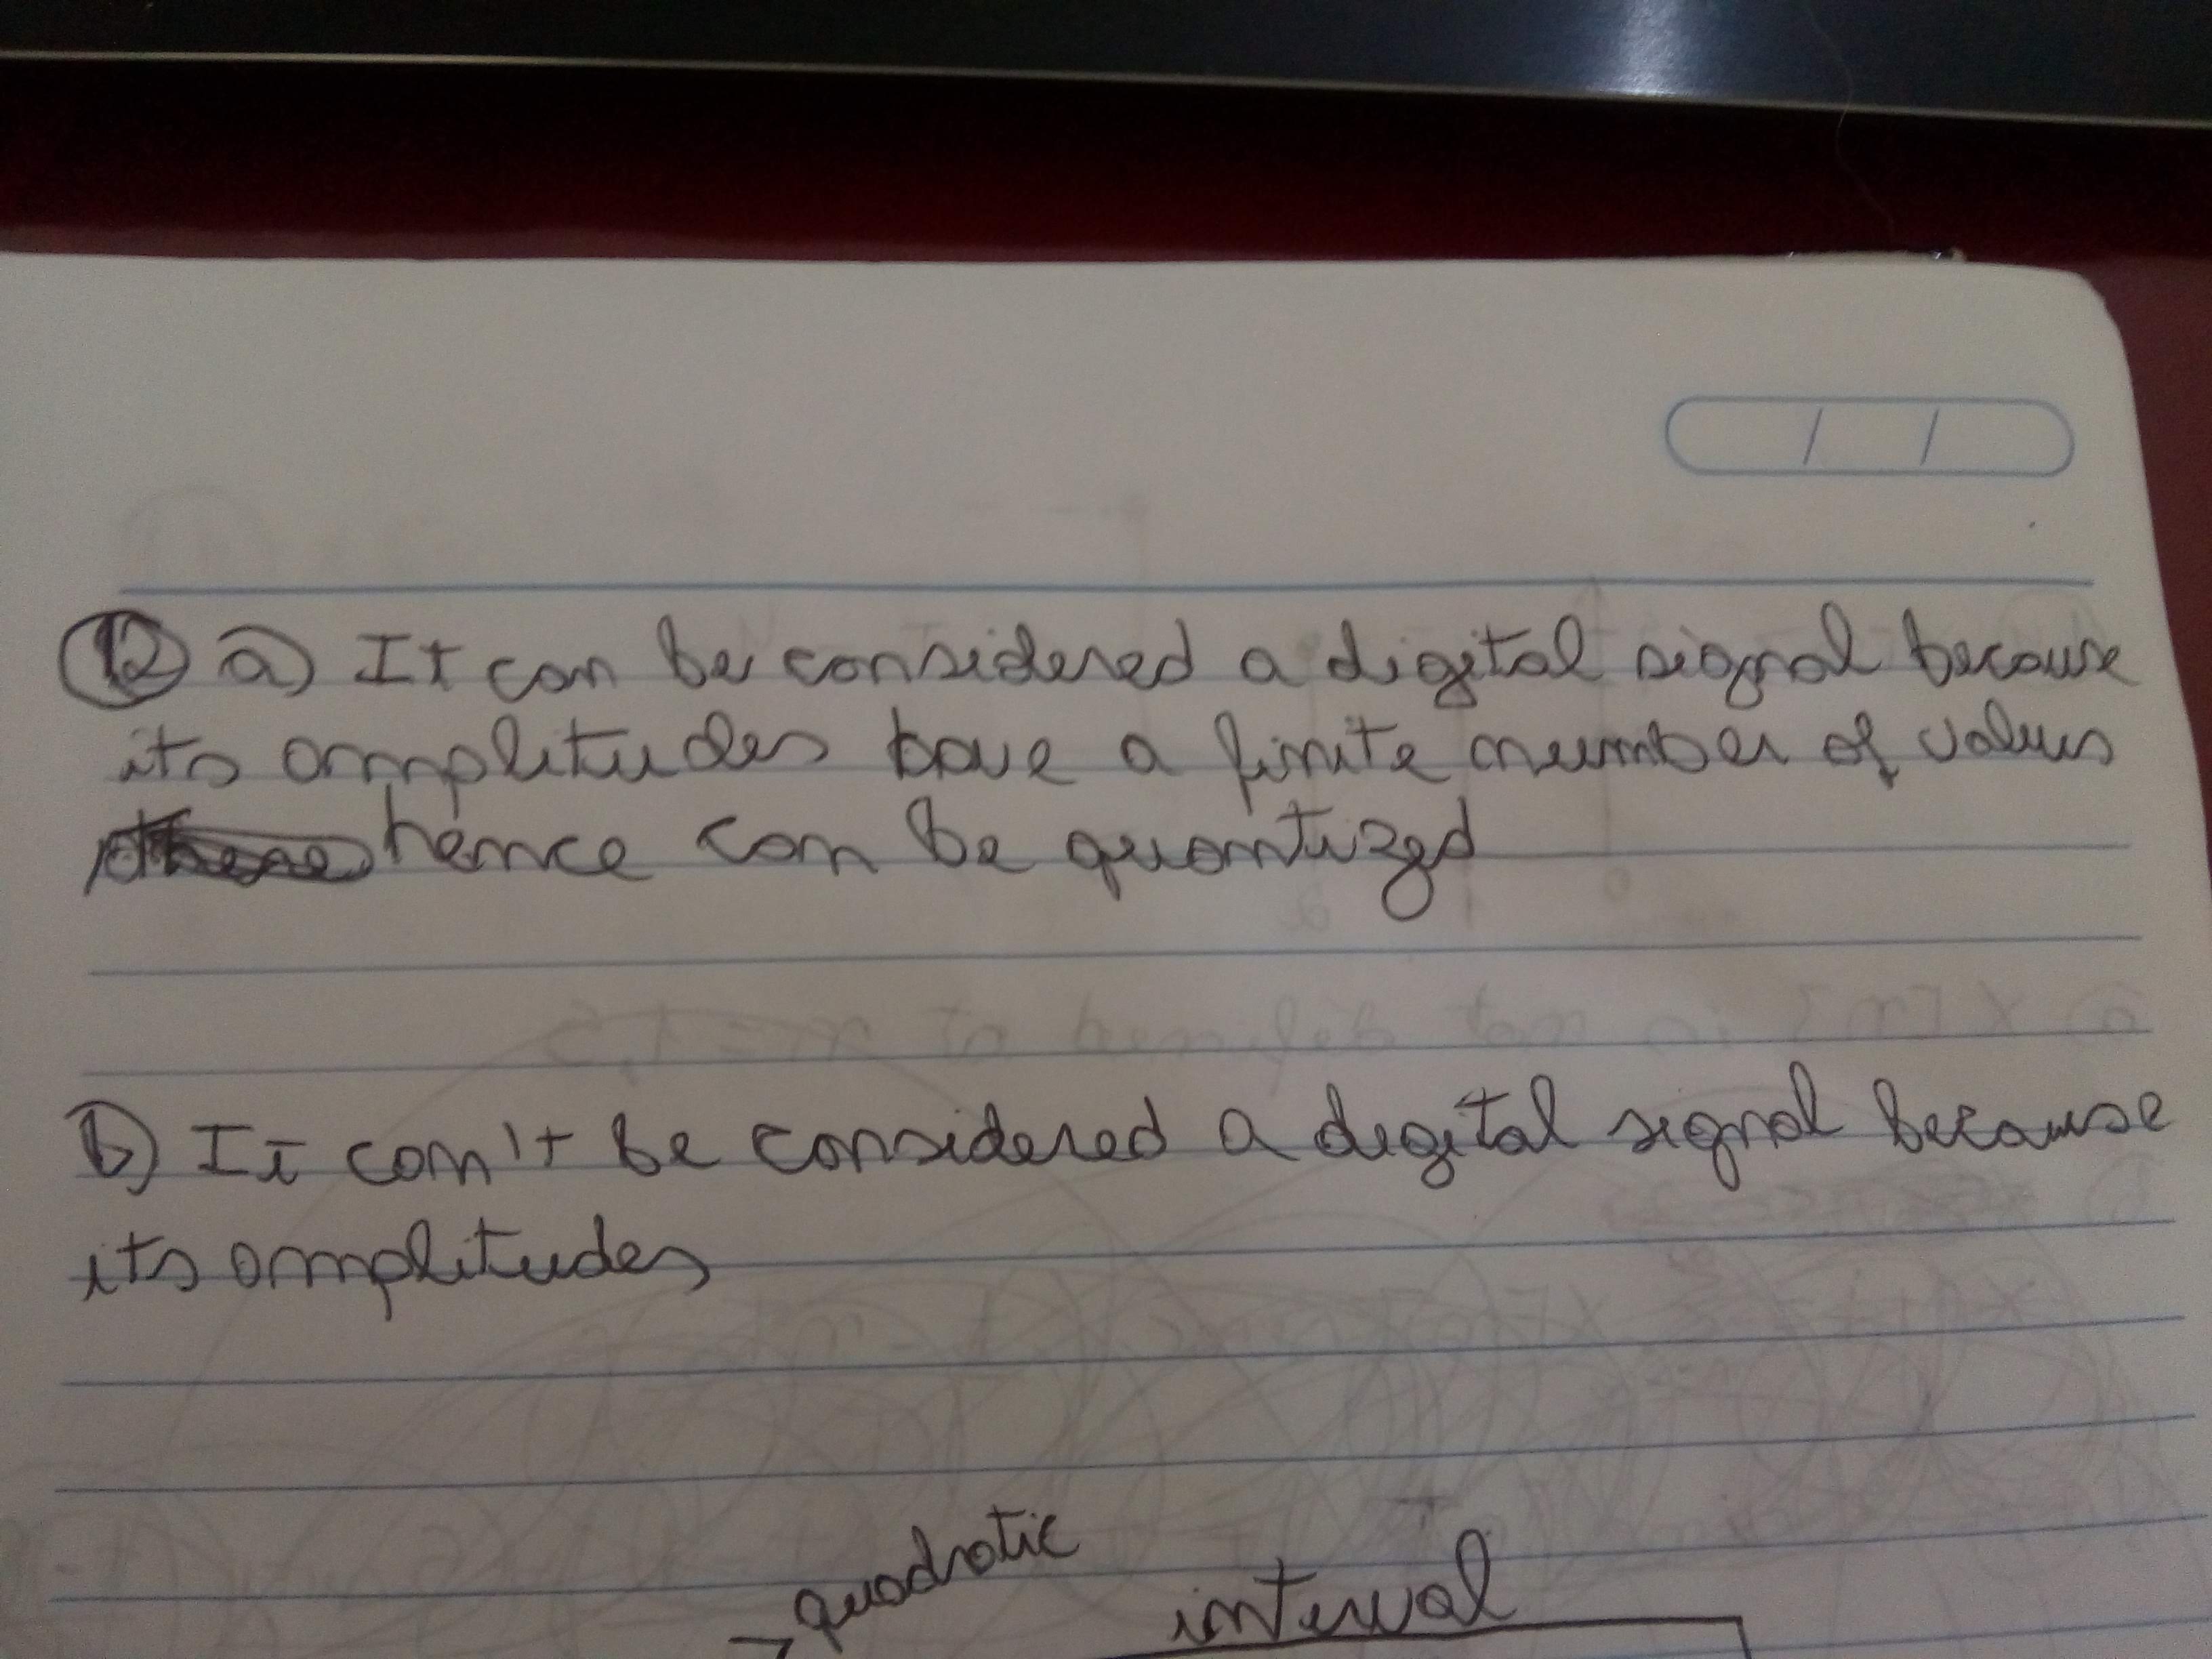 12 a) It can be considered a digital signal because
its amplitudes have a finite number of values
hence can be quantized
b) It can't be considered a digital signal because
its amplitudes
quadratic
interval